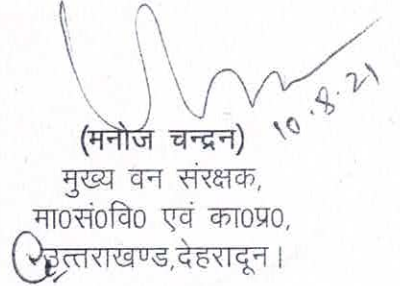 10.8.21
(मनोज चन्द्रन)
मुख्य वन संरक्षक,
मा0सं0वि0 एवं का0प्र0,
उत्तराखण्ड,देहरादून।